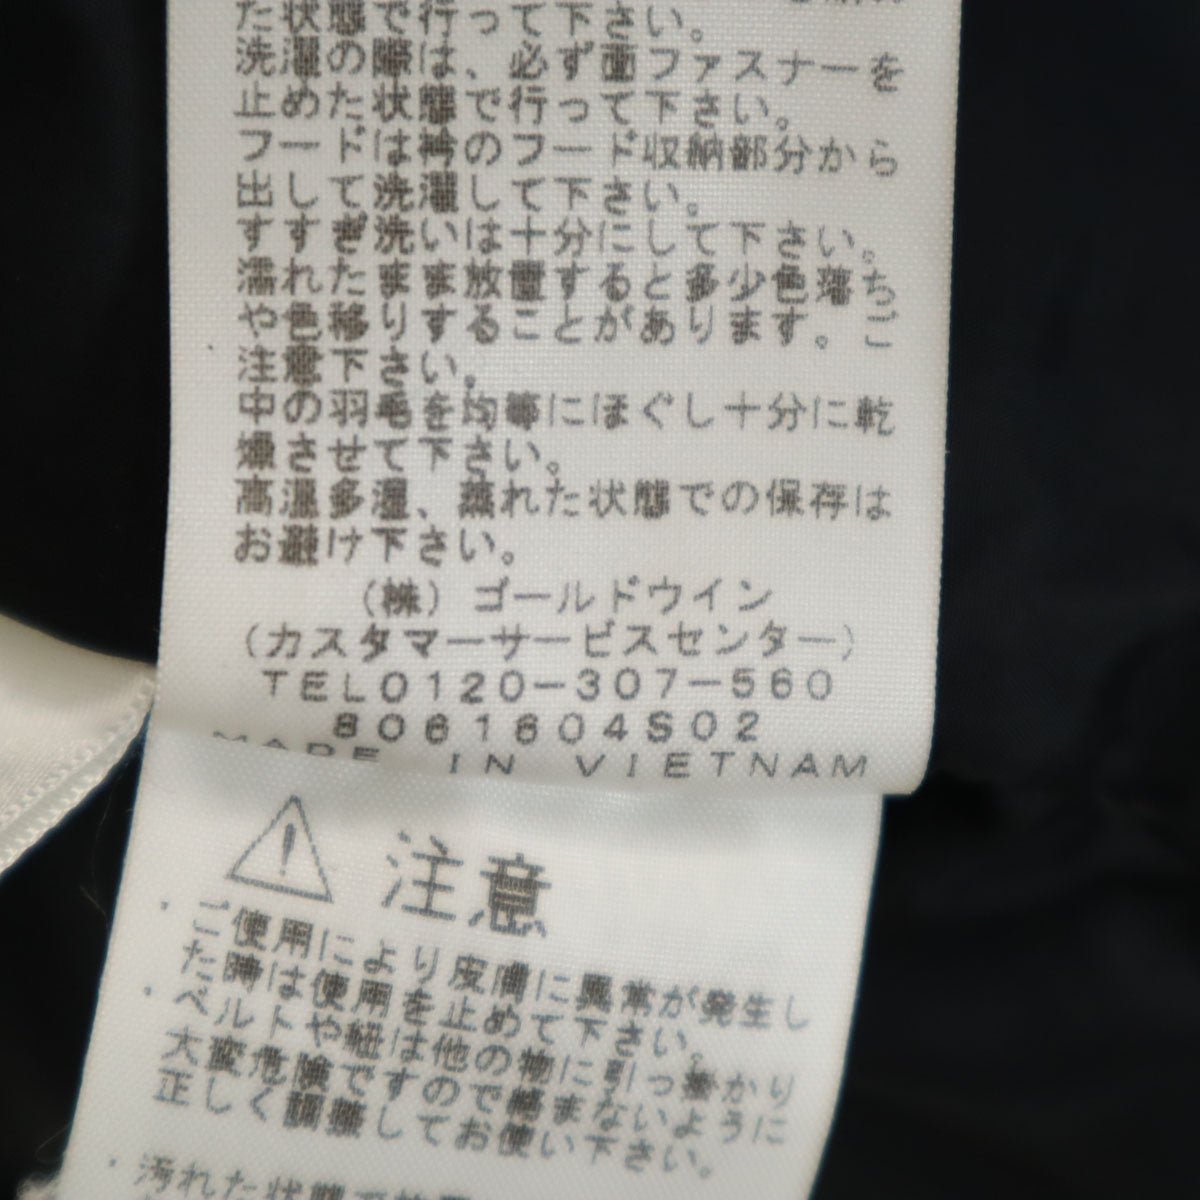 た状態で行って下さい。
洗濯の際は、必ず面ファスナーを
止めた状態で行って下さい。
フードは衿のフード収納部分から
出して洗濯して下さい。
すすぎ洗いは十分にして下さい。
濡れたまま放置すると多少色落ち
や色移りすることがあります。ご
注意下さい。
中の羽毛を均等にほぐし十分に乾
燥させて下さい。
高温多湿、蒸れた状態での保存は
お避け下さい。
(株)ゴールドウイン
(カスタマーサービスセンター)
TEL0120-307-560
8061604S02
MADE IN VIETNAM
注意
・ご使用により皮膚に異常が発生し
た時は使用を止めて下さい。
・ベルトや紐は他の物に引っ掛かり
大変危険ですので絡まないように
正しく調整してお使い下さい。
・汚れた状態で